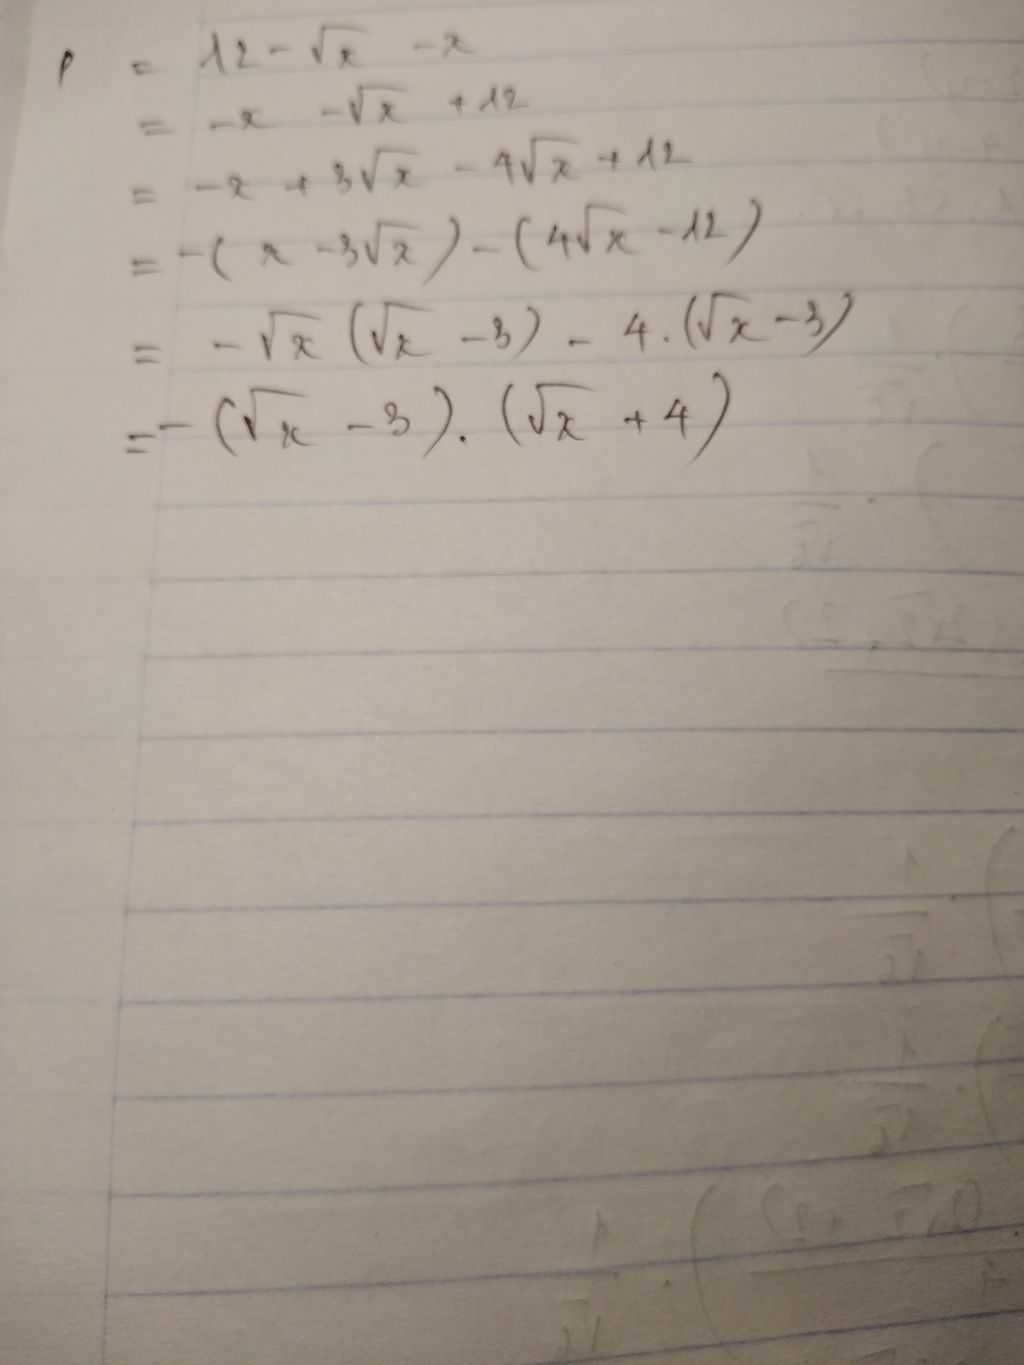 P = 12 - √x - x
= -x - √x + 12
= -x + 3√x - 4√x + 12
= -(x - 3√x) - (4√x - 12)
= -√x (√x - 3) - 4.(√x - 3)
= -(√x - 3).(√x + 4)